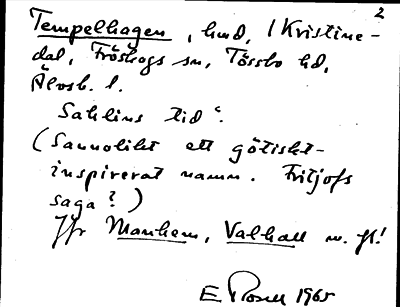 2
Tempelhagen, hmd, / Kristine-
dal, Fröskogs sn, Tössbo hd,
Älvsb. l.
Sahlins tid".
(Sannolikt ett götiskt-
inspirerat namn. Fritjofs
saga?)
Jfr Manhem, Valhall m. fl!
E Rosell 1965